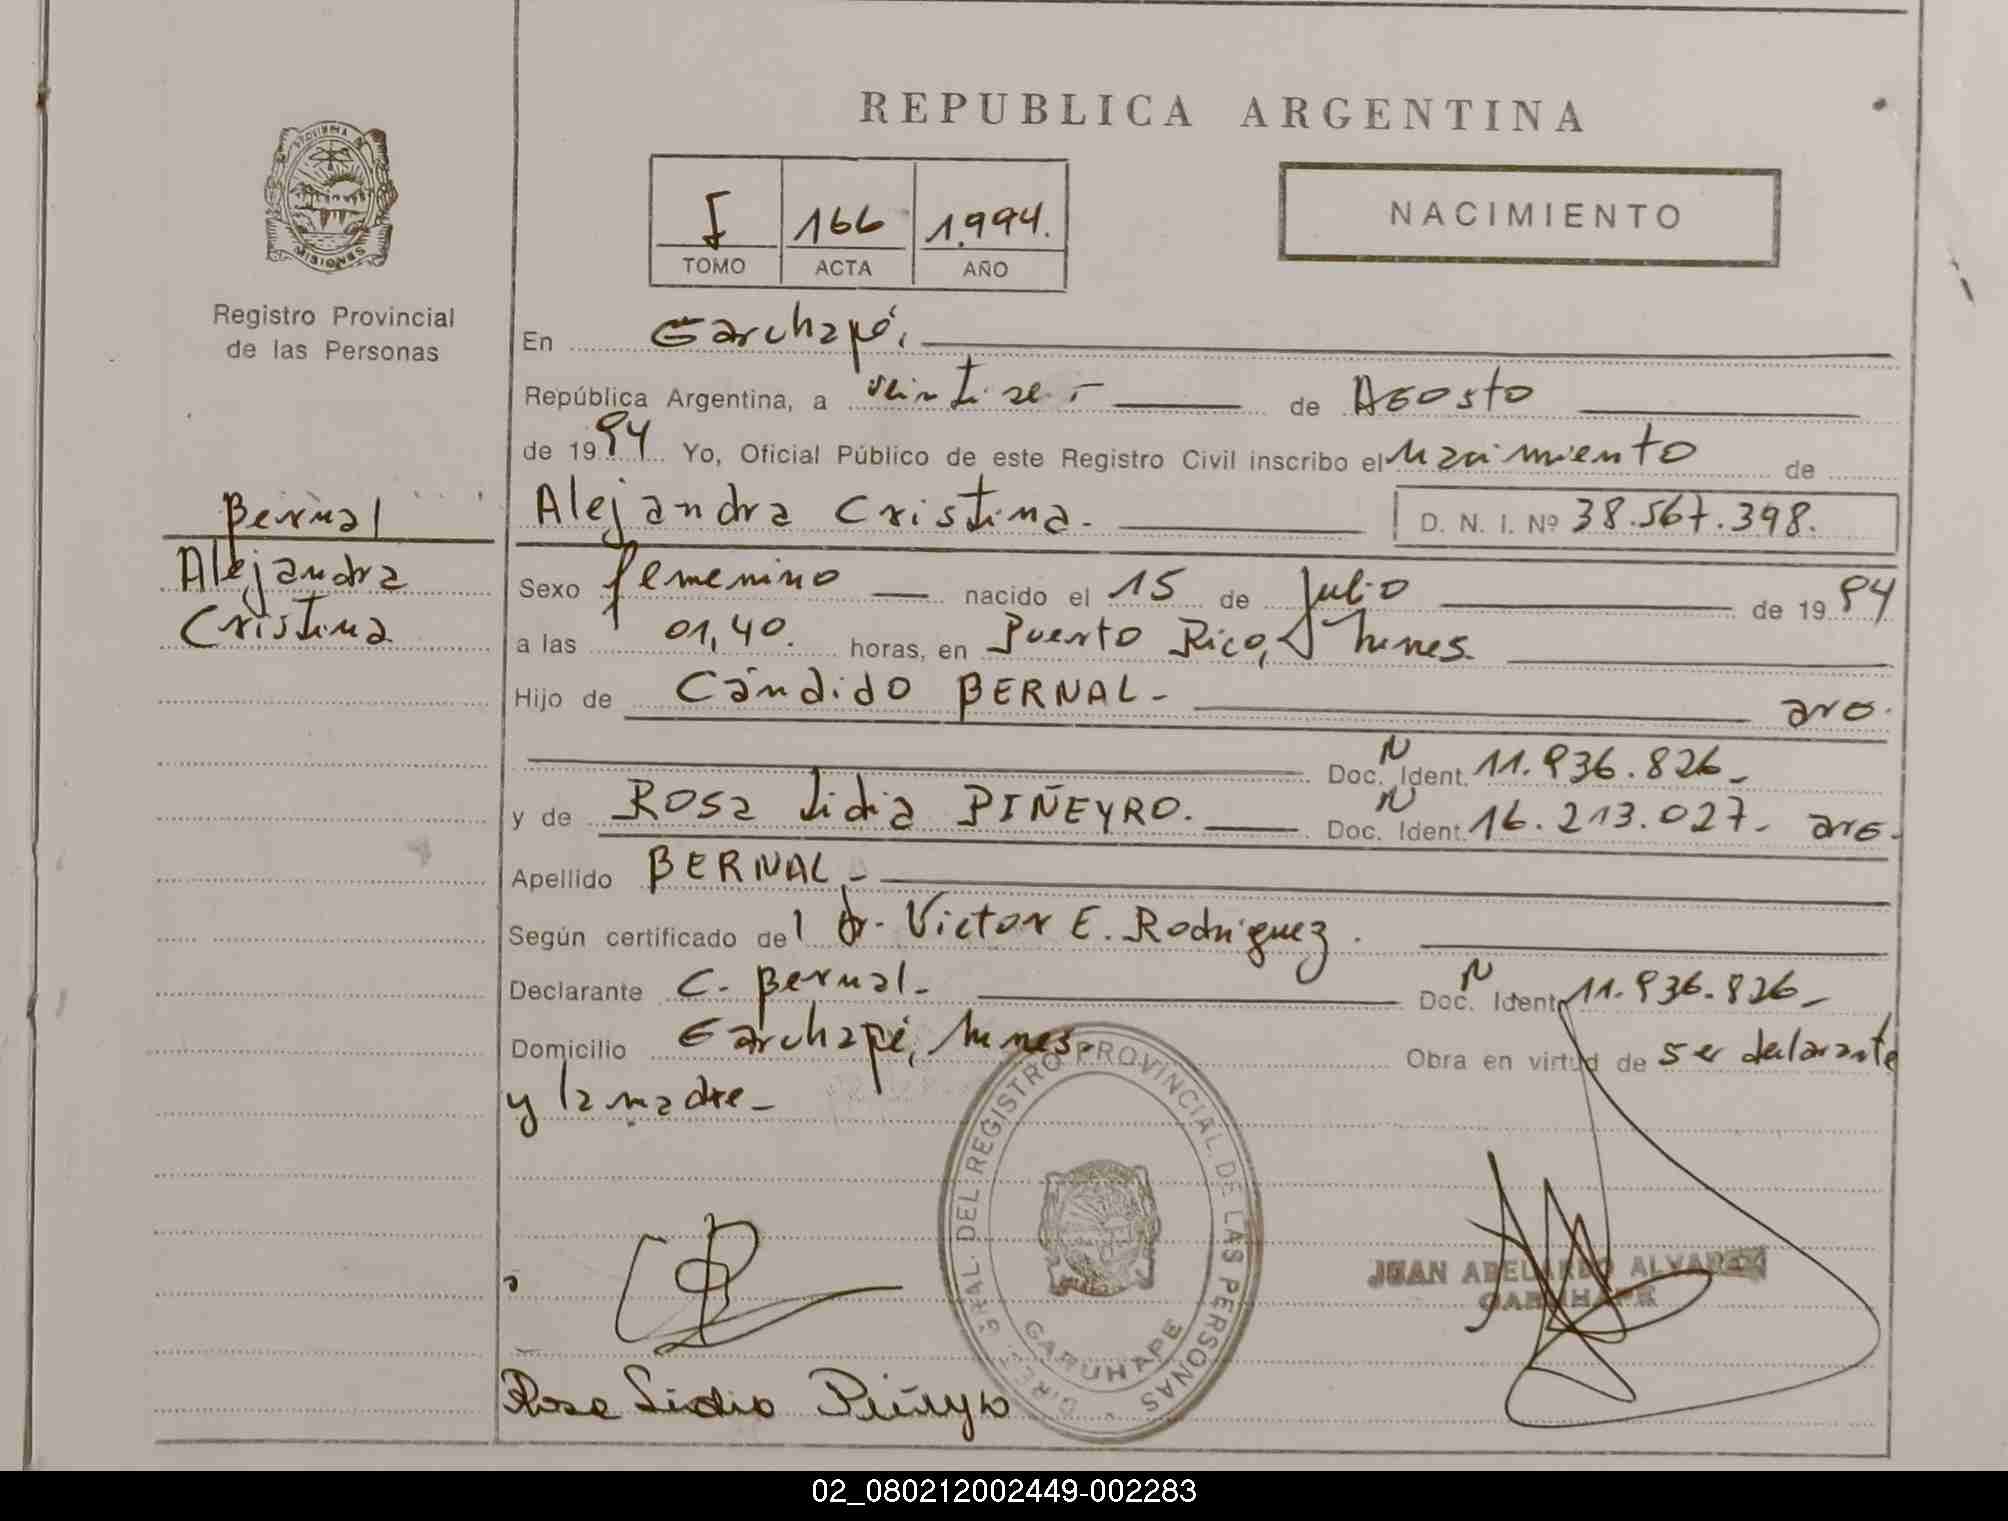 REPUBLICA ARGENTINA
PROVINCIA DE
MISIONES
Registro Provincial
de las Personas
I 166 1.994.
TOMO ACTA AÑO
NACIMIENTO
En Garuhapé,
República Argentina, a veintiseis de Agosto
de 1994 Yo, Oficial Público de este Registro Civil inscribo el nacimiento de
Alejandra Cristina. D. N. I. Nº 38.567.398.
Bernal
Alejandra
Cristina
Sexo femenino nacido el 15 de Julio de 1994
a las 01,40. horas, en Puerto Rico,
Hijo de Cándido BERNAL- arg.
Doc. N Ident. 11.936.826-
y de Rosa Lidia PIÑEYRO. Doc. N Ident. 16.213.027- arg.
Apellido BERNAL-
Según certificado del Dr. Victor E. Rodriguez.
Declarante C. Bernal- Doc. N Ident. 11.936.826-
Domicilio Garuhapé, Obra en virtud de ser declarante
y la madre-
DIREC. GRAL. DEL REGISTRO PROVINCIAL DE LAS PERSONAS
GARUHAPE
JUAN ABELARDO ALVAREZ
GARUHAPE
Rosa Lidia Piñeyro
02_080212002449-002283